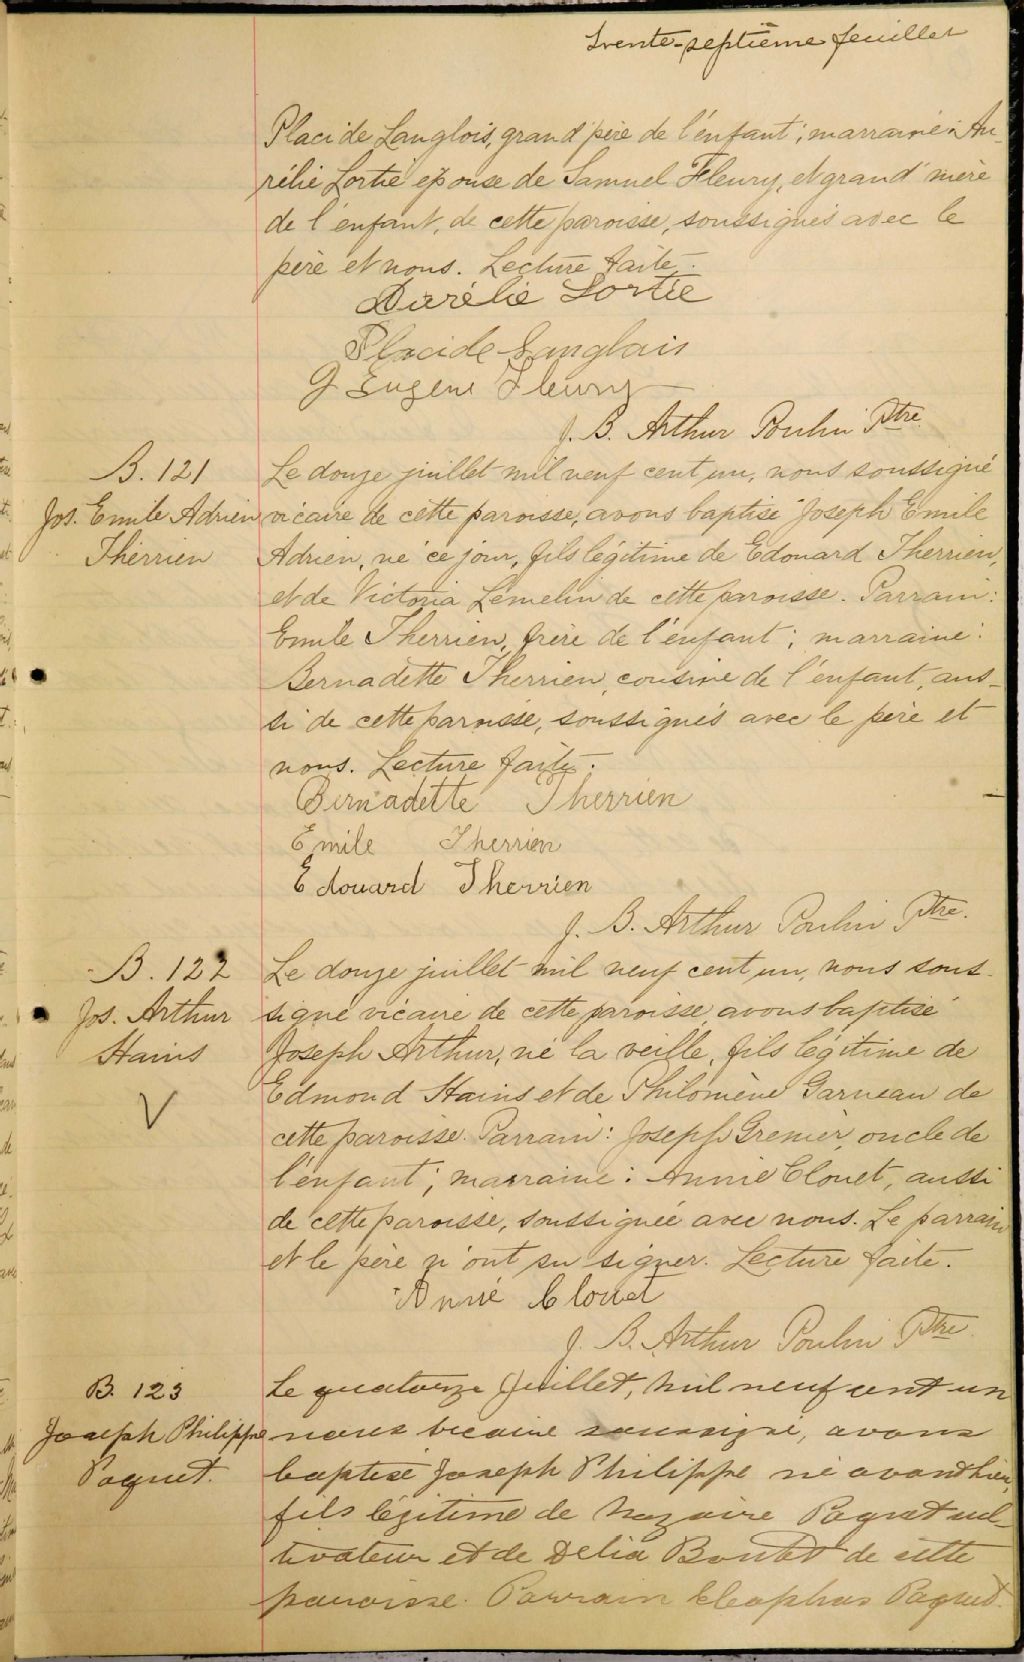 Trente-septième feuillet
Placide Langlois, grand père de l'enfant; marraine: Au-
rélie Lortie épouse de Samuel Fleury, et grand' mère
de l'enfant, de cette paroisse, soussignés avec le
père et nous. Lecture faite.
Aurélie Lortie
Placide Langlais
J Eugene Fleury
J. B. Arthur Poulin Ptre
B. 121
Jos. Emile Adrien
Therrien
Le douze juillet mil neuf cent un, nous soussigné
vicaire de cette paroisse, avons baptisé Joseph Emile
Adrien, né ce jour, fils légitime de Edouard Therrien,
et de Victoria Lemelin de cette paroisse. Parrain:
Emile Therrien, frère de l'enfant; marraine:
Bernadette Therrien, cousine de l'enfant, aus-
si de cette paroisse, soussignés avec le père et
nous. Lecture faite.
Bernadette Therrien
Emile Therrien
Edouard Therrien
J. B. Arthur Poulin Ptre.
B. 122
Jos. Arthur
Hains
V
Le douze juillet mil neuf cent un, nous sous-
signé vicaire de cette paroisse avons baptisé
Joseph Arthur, né la veille, fils légitime de
Edmond Hains et de Philomène Garneau de
cette paroisse. Parrain: Joseph Grenier, oncle de
l'enfant; marraine: Annie Clouet, aussi
de cette paroisse, soussignée avec nous. Le parrain
et le père n'ont su signer. Lecture faite.
Annié Clouet
J. B. Arthur Poulin Ptre
B. 123
Joseph Philippe
Paquet.
Le quatorze Juillet, mil neuf cent un
nous vicaire soussigné, avons
baptisé Joseph Philippe né avant hier,
fils légitime de Nazaire Paquet cul-
tivateur et de Delia Boutet de cette
paroisse. Parrain Cléophas Paquet.